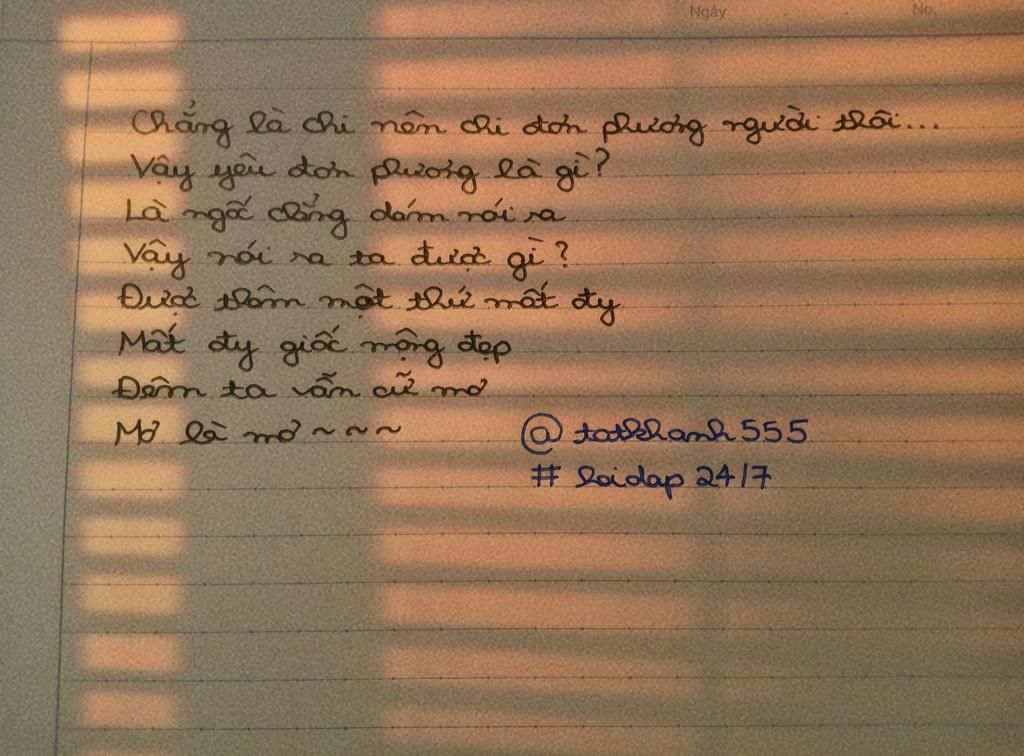 Ngày No.
Chẳng là chi nên chi đơn phương người thôi...
Vậy yêu đơn phương là gì?
Là ngốc chẳng dám nói ra
Vậy nói ra ta được gì?
Được thêm một thứ mất đy
Mất đy giấc mộng đẹp
Đêm ta vẫn cứ mơ
Mơ là mơ ~ ~ ~
@ totkhanh 555
# loidap 24/7